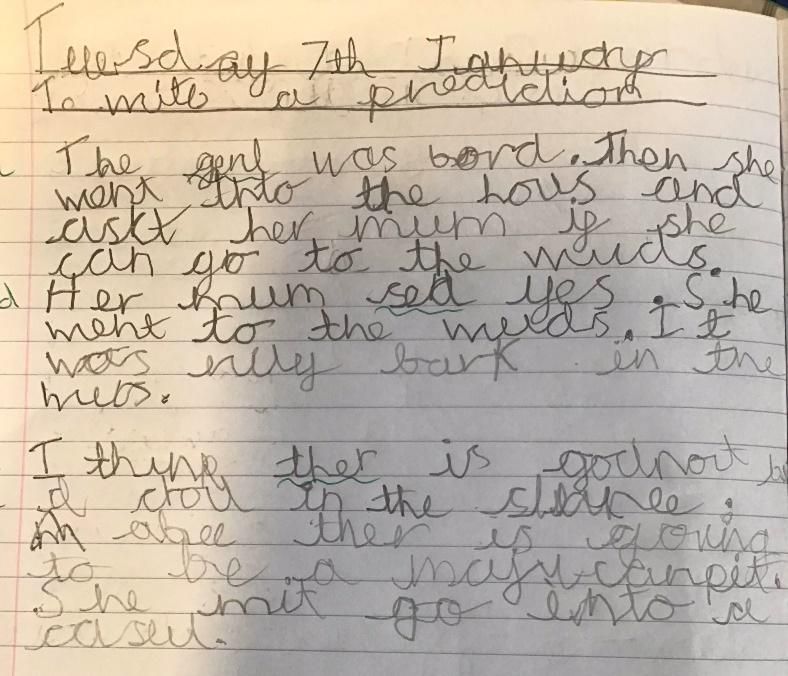 Tuesday 7th January
To write a prediction
The genl was bord. Then she
went into the hous and
askt her mum if she
can go to the wuds.
Her mum sed yes. She
went to the wuds. It
was rilly bark in the
wubs.
I thynk ther is godnot
a doll in the
ther is goving
to be a majucanpit.
She mit go ento a
casul.